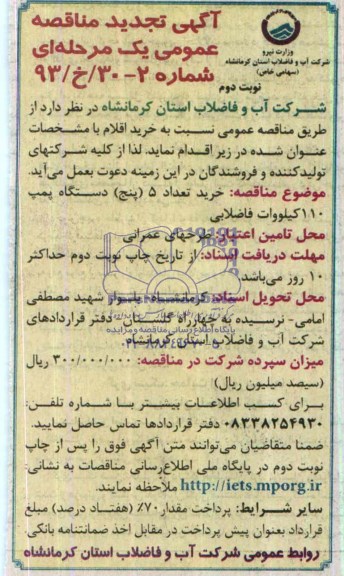 آگهی تجدید مناقصه
عمومی یک مرحله‌ای
شماره ۲-۳۰/خ/۹۳
وزارت نیرو
شرکت آب و فاضلاب استان کرمانشاه
(سهامی خاص)
نوبت دوم
شرکت آب و فاضلاب استان کرمانشاه در نظر دارد از
طریق مناقصه عمومی نسبت به خرید اقلام با مشخصات
عنوان شده در زیر اقدام نماید. لذا از کلیه شرکتهای
تولیدکننده و فروشندگان در این زمینه دعوت بعمل می‌آید.
موضوع مناقصه: خرید تعداد ۵ (پنج) دستگاه پمپ
۱۱۰کیلووات فاضلابی
محل تامین اعتبار: طرحهای عمرانی
مهلت دریافت اسناد: از تاریخ چاپ نوبت دوم حداکثر
۱۰ روز می‌باشد.
محل تحویل اسناد: کرمانشاه، بلوار شهید مصطفی
امامی- نرسیده به چهارراه گلستان- دفتر قراردادهای
شرکت آب و فاضلاب استان کرمانشاه
میزان سپرده شرکت در مناقصه: ۳۰۰/۰۰۰/۰۰۰ ریال
(سیصد میلیون ریال)
برای کسب اطلاعات بیشتر با شماره تلفن:
۰۸۳۳۸۲۵۴۹۳۰ دفتر قراردادها تماس حاصل نمایید.
ضمنا متقاضیان می‌توانند متن آگهی فوق را پس از چاپ
نوبت دوم در پایگاه ملی اطلاع‌رسانی مناقصات به نشانی:
http://iets.mporg.ir ملاحظه نمایند.
سایر شرایط: پرداخت مقدار ۷۰٪ (هفتاد درصد) مبلغ
قرارداد بعنوان پیش پرداخت در مقابل اخذ ضمانتنامه بانکی.
روابط عمومی شرکت آب و فاضلاب استان کرمانشاه